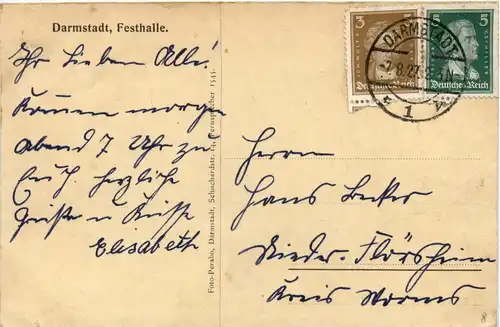 Darmstadt, Festhalle.
Ihr Lieben Alle!
Kommen morgen
abend 7 Uhr zu
Euch. herzliche
Grüße u Küsse
Elisabeth
Foto-Perabo, Darmstadt, Schuchardstr. 14, Fernsprecher 1545.
3
JOH. W. GOETHE
Deutsches Reich
5
FR. V. SCHILLER
Deutsches Reich
DARMSTADT
1
Herrn
Hans Becker
Nieder-Flörsheim
Kreis Worms
8